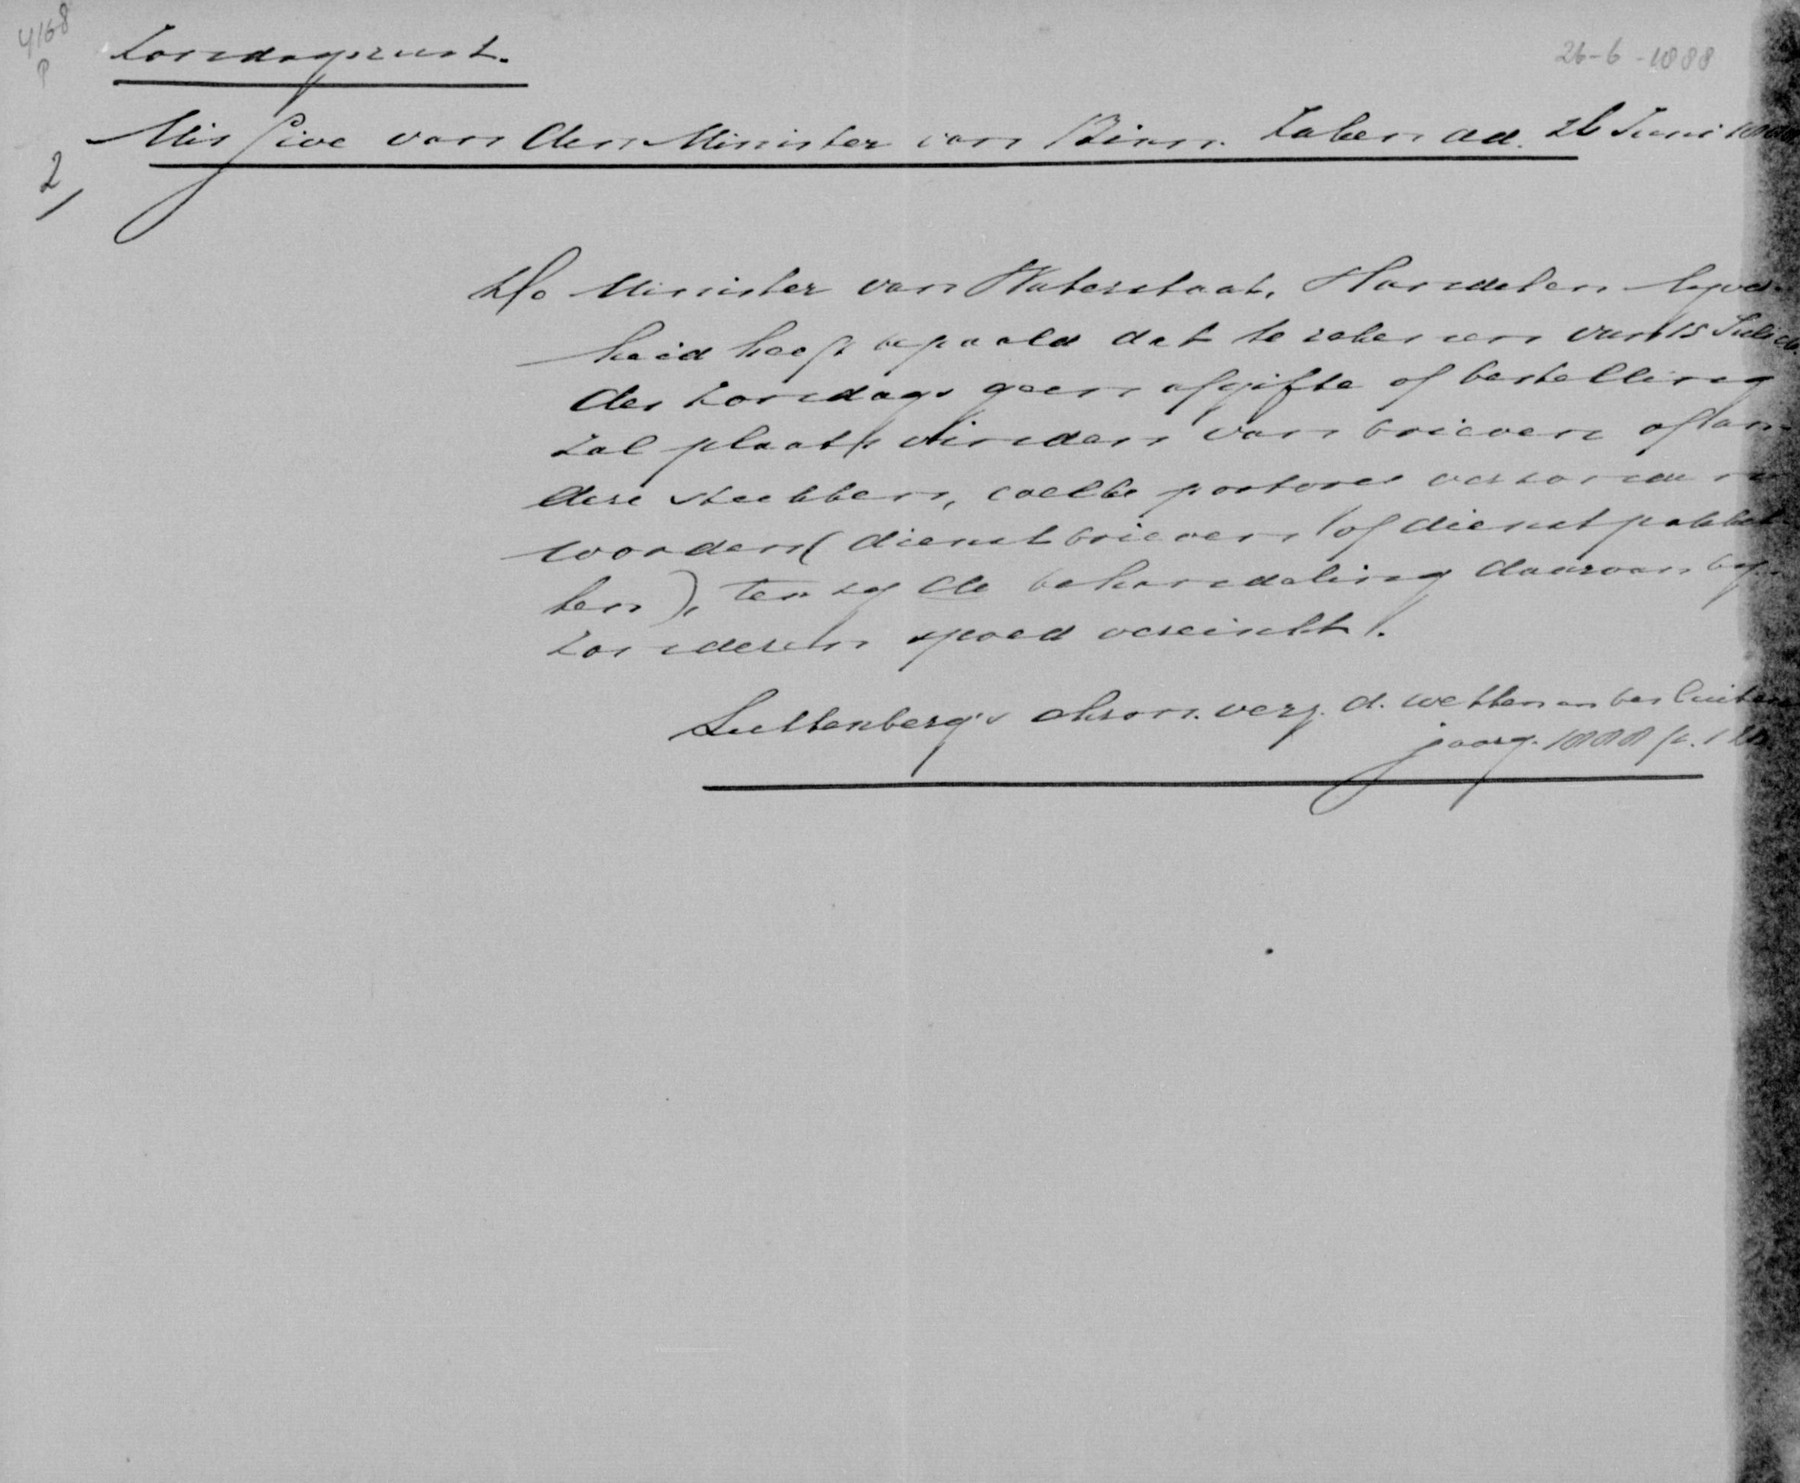 4168
P
Zondagsrust.
26-6-1888
Missive van den Minister van Binn. Zaken dd. 26 Juni 1888
2/
De Minister van Waterstaat, Handel en Nijver-
heid heeft bepaald dat te rekenen van 15 Juli
des Zondags geen afgifte of bestelling
zal plaats vinden van brieven of an-
dere stukken, welke portvrij verzonden
worden (dienstbrieven of dienstpakket-
ten), tenzij de behandeling daarvan bij-
zonderen spoed vereischt.
Luttenberg's chron. verz. d. wetten en besluiten
jaarg. 1888 p.